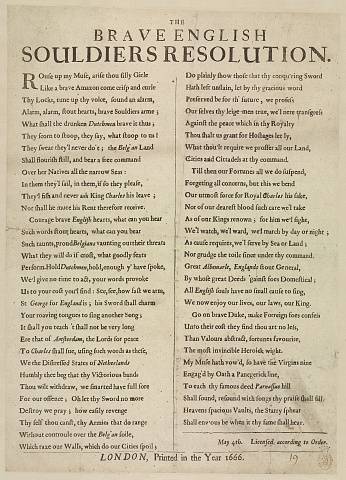 THE
BRAVE ENGLISH
SOULDIERS RESOLUTION.
Rouse up my Muse, arise thou silly Girle
Like a brave Amazon come crisp and curle
Thy Locks, tune up thy voice, sound an alarm,
Alarm, alarm, stout hearts, brave Souldiers arme;
What shall the drunken Dutchmen brave it thus;
They scorn to stoop, they say, what stoop to us!
They swear they'l never do't; the Belg'an Land
Shall flourish still, and bear a free command
Over her Natives all the narrow Seas:
In them they'l sail, in them, if so they please,
They'l fish and never ask King Charles his leave;
Nor shall he more his Rent therefore receive.
Courage brave English hearts, what can you hear
Such words stout hearts, what can you bear
Such taunts, proud Belgians vaunting out their threats
What they will do if crost, what goodly feats
Perform. Hold Dutchmen, hold, enough y'have spoke,
We'l give no time to act, your words provoke
Us to your cost you'l find: See, see, how fast we arm,
St George for England is; his Sword shall charm
Your roaring tongues to sing another Song;
It shall you teach 't shall not be very long
Ere that of Amsterdam, the Lords for peace
To Charles shall sue, using such words as these,
We the Distressed States of Netherlands
Humbly thee beg that thy Victorious hands
Thou wilt withdraw, we smarted have full sore
For our offence; Oh let thy Sword no more
Destroy we pray; how easily revenge
Thy self thou canst, thy Armies that do range
Without controule over the Belg'an soile,
Which raze our Walls, which do our Cities spoil;
Do plainly show those that thy conqu'ring Sword
Hath left unslain, let by thy gracious word
Preserved be for th' future, we profess
Our selves thy leige-men true, we'l nere transgress
Against the peace which in thy Royalty
Thou shalt us grant for Hostages let ly,
What thou'lt require we proffer all our Land,
Cities and Cittadels at thy command.
Till then our Fortunes all we do suspend,
Forgeting all concerns, but this we bend
Our utmost force for Royal Charles his sake,
Nor of our dearest blood such care we'l take
As of our Kings renown; for him we'l fight,
We'l watch, we'l ward, we'l march by day or night;
As cause requires, we'l serve by Sea or Land;
Nor grudge the toile since under thy command.
Great Albemarle, Englands stout General,
By whose great Deeds 'gainst foes Domestical;
All English souls have no small cause to sing,
We now enjoy our lives, our laws, our King.
Go on brave Duke, make Foreign foes confess
Unto their cost they find thou art no less,
Than Valours abstract, fortunes favourite,
The most invincible Heroick wight.
My Muse hath vow'd, so have the Virgins nine
Engag'd by Oath a Panegerick line,
To each thy famous deed Parnassus hill
Shall sound, resound with songs thy praise shall fill
Heavens spacious Vaults, the Starry sphear
Shall envous be when it thy fame shall hear.
May 4th. Licensed, according to Order.
LONDON, Printed in the Year 1666.
19